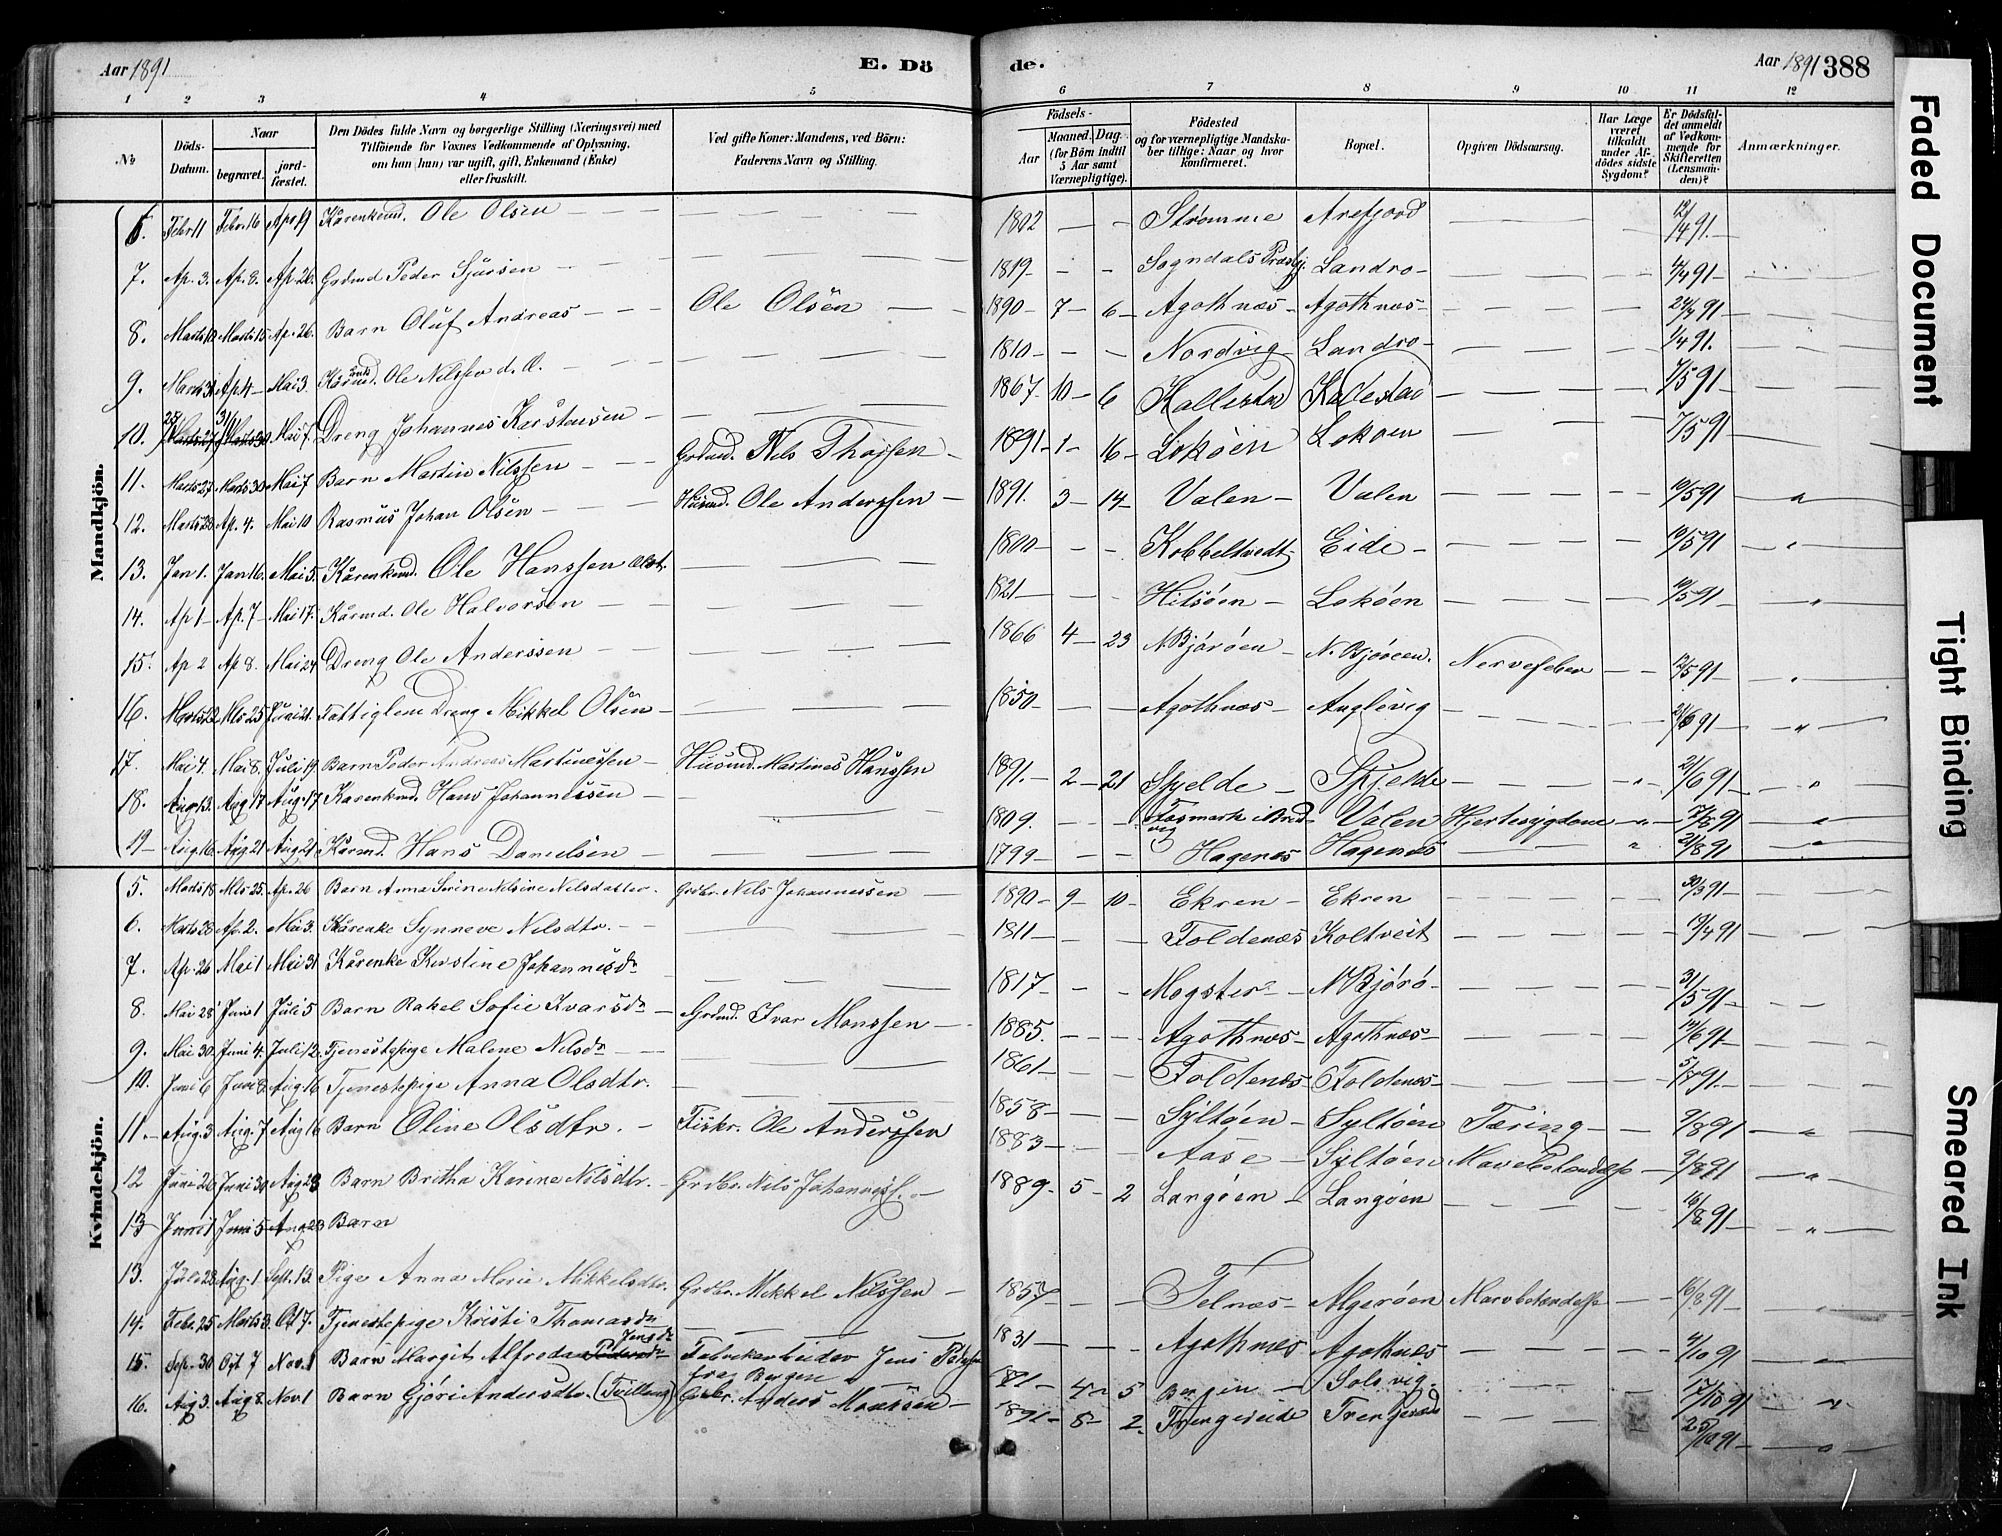 Aar 1891 E. Dö de. Aar 1891 388
1 2 3 4 5 6 7 8 9 10 11 12
No
Döds-Datum.
Naar
begravet.
jordfæstet.
Den Dödes fulde Navn og borgerlige Stilling (Næringsvei) med
Tilföiende for Voxnes Vedkommende af Oplysning,
om han (hun) var ugift, gift, Enkemand (Enke)
eller fraskilt.
Ved gifte Koner: Mandens, ved Börn:
Faderens Navn og Stilling.
Födsels-
Aar
Maaned. Dag.
(for Börn indtil
5 Aar samt
Værnepligtige).
Födested
og for værnepligtige Mandskaber tillige: Naar og hvor
konfirmeret.
Bopæl.
Opgiven Dödsaarsag.
Har Læge
været
tilkaldt
under Afdödes sidste
Sygdom?
Er Dödsfaldet anmeldt
af Vedkommende for
Skifteretten
(Lensmanden)?
Anmærkninger.
Mandkjön.
6. Febr 11 Febr. 16 Apr 19 Kårenkemd. Ole Olsen — 1802 — — Strømme Arefjord — 12/14 91.—
7. Ap. 3. Ap. 8. Ap. 26. Grdmd Peder Sjursen — 1819 — — Sogndals Præstgj. Landro — 4/4 91 —
8. Marts 12 Marts 15 Ap. 26. Barn Oluf Andreas — Ole Olsen — 1890 — 7 — 6 — Agothnæs — Agothnæs — 24/4 91
9. Marts 31 Ap. 4 — Mai 3. Kårmd. Ole Nilssen d. Æ. — 1810 — — Nordvig Landro — 1/4 91.
10. Mai 7. Dreng Johannes Karstensen — 1867 10 — 6 Kallestad Kallestad — 7/5 91
11. Marts 27 Marts 30 Mai 7 Barn Martin Nilssen — Grdmd. Nils Thorssen — 1891 — 1 — 16 — Lokøen Lokøen — 7/5 91
12. Marts 28 Ap. 4. Mai 10 Rasmus Johan Olsen — Husmd. Ole Anderssen — 1891. 3 — 14 — Valen — Valen — 10/5 91 — "
13. Jan 1. Jan 16. Mai 5. Kårenkemd. Ole Hanssen — 1800 — — Kobbeltvedt Eide — 10/5 91 — "
14. Ap 1 — Ap. 7 — Mai 17. Kårmd. Ole Halvorsen — 1821 — — Hitsøen — Lokøen — 10/5 91 — "
15. Ap 2 Ap 8. Mai 24 Dreng Ole Anderssen — 1866 4 — 23 N. Bjørøen — N. Bjørøen. Nervefeber — 12/5 91 — "
16. Marts 22 Mts 25 Juni 21. Fattiglem Dreng Mikkel Olsen — 1850 — — Agothnæs — Anglevig — 21/6 91 — "
17. Mai 4. Mai 8. Juli 19 Barn Peder Andreas Martinessen — Husmd. Martines Hanssen 1891. — 2 — 21 Spjelde — Spjelde — " — 21/6 91 — "
18. Aug 13. Aug 17 Aug. 17 Karenkmd. Hans Johannessen — 1809. — — Valen Hjertesygdom — " — 17/8 91 — "
19 — Aug. 16 Aug. 21 Aug 21 Kårmd. Hans Danielsen — 1799 — — Hagenæs Hagenæs — " 21/8 91 — "
Kvindekjön.
5. Marts 18 Mts 25. Ap. 26 Barn Anna Serine Nilsine Nilsdatter. Grdbr. Nils Johannessen — 1890 — 9 — 10 — Ekren — Ekren — 30/3 91 —
6. Marts 28 Ap. 2. Mai 3. Kårenke Synneve Nilsdtr. — 1811 — — Foldenæs Koltveit — 19/4 91 —
7. Ap. 26 Mai 1 Mai 31 Kårenke Kirstine Johannesdr — 1817 — — Mogster — N Bjørø — 31/5 91 —
8. Mai 28 Juni 1 Juli 5 Barn Rakel Sofie Ivarsdr — Grdmd. Ivar Monssen — 1885. — — Agothnæs — Agothnæs — 14/6 91 —
9. Mai 30. Juni 4. Juli 12. Tjenestepige Malene Nilsdr — 1861 — — Foldenæs — Foldenæs — 5/7 91. —
10. Juni 6 Juni 8. Aug 16 Tjenestepige Anna Olsdtr. — 1858 — — Syltøen — Syltøen Tæring — 9/8 91 — "
11. — Aug. 3 Aug. 7 Aug 16 Barn Oline Olsdtr. — Fiskr. Ole Anderssen 1883 — — Aase — Syltøen — 9/8 91 — "
12 Juni 26 Juni 30 Aug 23 Barn Britha Karine Nilsdtr. — Grdbr. Nils Johannessen — 1889. 5 — 2 Langøen — Langøen — 16/8 91 — "
13 Juni 1 Juni 5 Aug 23 Barn
13. Juli 28 Aug. 1 Sept. 13. Pige Anna Marie Mikkelsdtr. Grdbr. Mikkel Nilssen — 1857 — — Telnæs — Algerøen Mavebetændelse — 16/8 91 — "
14. Febr. 25 Marts 3. Oct 7. Tjenestepige Kristi Thomasdr — 1831 — — Agothnæs Agothnæs — 4/10 91 — "
15. Sep. 30 Oct 7 Nov. 1 Barn Margit Alfreda Pedersdr Jensdr Fabrikarbeider Jens Petersen
fra Bergen 4 — 5 Bergen — Solsvig — 17/10 91 "
16. Aug 3. Aug 8. Nov. 1 Barn Gjøri Andersdtr. (Tvilling) Grdbr. Anders Monssen — 1891 — 5 — 2. Trengereide Trengereide — 25/10 91 — "
Faded Document
Tight Binding
Smeared Ink